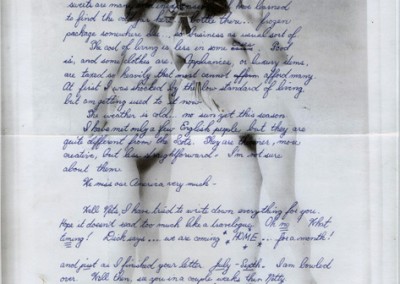 swits are many
to find the
package somewhere business as usual sort of.
The cost of living is less in some Food
is, and some clothes are. Appliances, or luxury items,
are taxed so heavily that most cannot afford many.
At first I was shocked by the low standard of living,
but am getting used to it now.
The weather is cold... no sun yet this season.
I have met only a few English people but they are
quite different from the Scots. They are warmer, more
creative, but less straightforward. I'm not sure
about them.
We miss our America very much -
Well Pets, I have tried to write down everything for you.
Hope it doesn't sound too much like a travelogue. Oh me What
timing! Dick says... we are coming HOME... for a month!
and just as I finished your letter July - Sixth. I am bowled
over. Well then, see you in a couple weeks then Natty